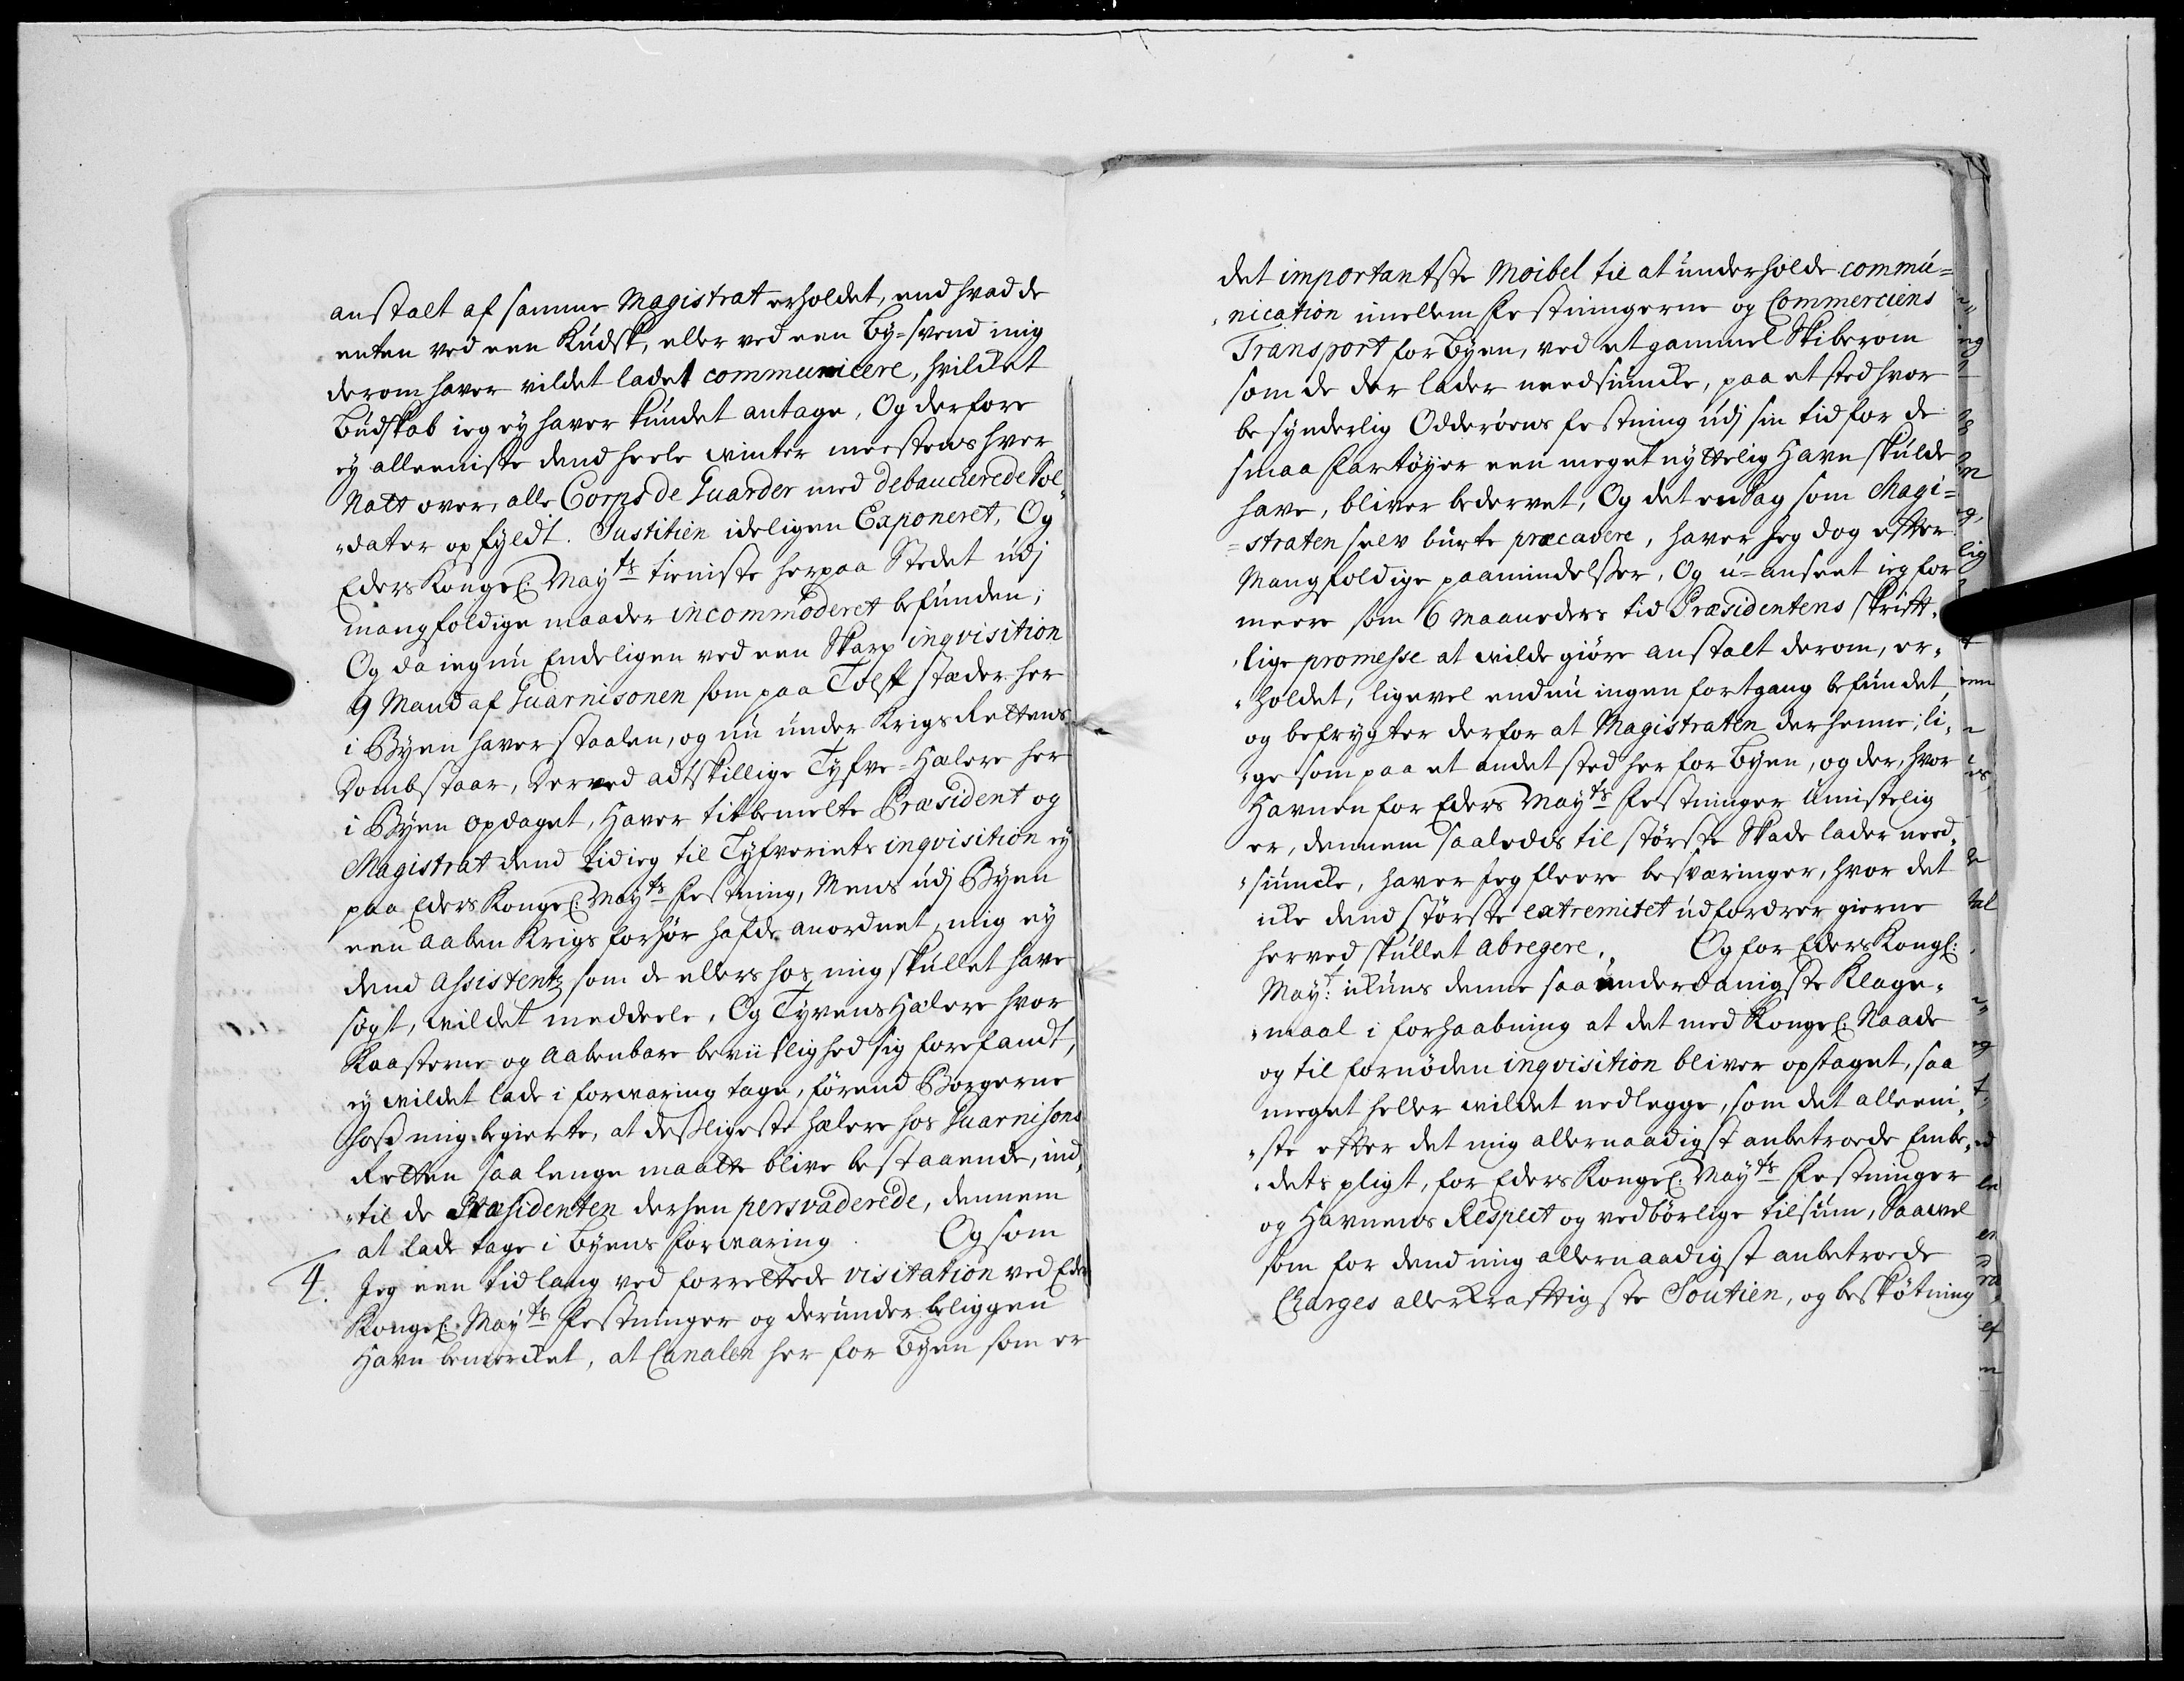 anstalt af samme Magistrat erholdet, end hvad de
enten ved een Kudsk, eller ved een By-svend mig
derom haver vildet ladet communicere, hvilcket
Budskab ieg ey haver kundet antage, Og derfore
ey alleeniste dend heele winter meestens hver
Natt over, alle Corps de Guarder med debaucherede Sol„
„dater opfyldt. Justitien ideligen Exponeret, Og
Eders Kongel: Mayts tieniste her paa Stedet udj
mangfoldige maader incommoderet befunden;
Og da ieg nu Endeligen ved een Skarp inqvisition
9 Mand af Guarnisonen som paa Tolff stæder her
i Byen haver staalen, og nu under Krigs Rettens
Domb staar, derved adtskillige Tyfve-Hælere her
i Byen opdaget, Haver titbemelte Præsident og
Magistrat dend tid ieg til Tyfveriets inqvisition ey
paa Eders Kongel: Mayts Festning, Mens udj Byen
een aaben Krigs forhør hafde anordnet, mig ey
dend Assistentz som de ellers hos mig skullet have
søgt, wildet meddeele, Og Tyvens Hælere hvor
Kaasterne og aabenbare beviislighed sig forefandt,
ey wildet lade i forwaring tage, førend Borgerne
hoß mig begierte, at desligeste hælere hos Guarnisons
Retten saa lenge maatte blive bestaaende, ind„
„til de Præsidenten derhen persvaderede, dennem
at lade tage i Byens forwaring. Og som
4. Jeg een tid lang ved forrettede visitation ved Eders
Kongel: Mayts Festninger og derunder beliggen
Havn bemercket, at Canalen her for Byen som er
det importantste Moibel til at underholde commu=
nication imellem Festningerne og Commerciens
Transport for Byen, ved et gammel Skiberom
som de der lader needsuncke, paa et sted hvor
besynderlig Odderøens festning udj sin tid for de
smaa Fartøyer een meget nyttelig Havn skulde
have, bliver bedervet, Og det en Sag som Magi=
=straten selv burte præcavere, haver Jeg dog efter
Mangfoldige paamindelßer, Og u-anseet ieg for
meere som 6 Maaneders tid Præsidentens skrifft„
„lige promesse at wilde giøre anstalt derom, er„
„holdet, ligevel endnu ingen fortgang befundet,
og befrygter derfor at Magistraten derhenne; li„
„ge som paa et andet sted her for Byen, og der, hvor
Havnen for Eders Mayts Festninger umistelig
er, dennem saaledes til største Skade lader need„
„suncke, haver Jeg fleere besværinger, hvor det
icke dend største extremitet udfordrer gierne
herved skullet abregere. Og for Eders Kongl:
Mayt: ickuns denne saa underdanigste Klage„
„maal i forhaabning at det med Kongel: Naade
og til fornøden inqvisition bliver optaget, saa
meget heller wildet nedlegge, som det alleeni„
„ste efter det mig allernaadigst anbetroede Embe„
„dets pligt, for Eders Kongel: Mayts Festninger
og Havnens Respect og vedbørlige tilsiun, Saavel
som for dend mig allernaadigst anbetroede
Charges allerkrafftigste Soutien, og beskøtning